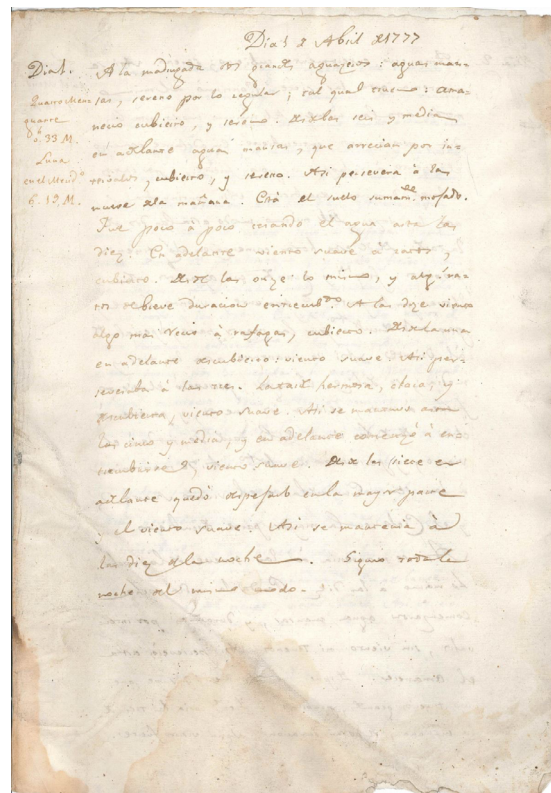 Dia 1 Abril de 1777
Dia 1. A la madrugada grandes aguaceros: aguas man-
Quarto Men-
guante
5. 33. M.
Luna
en el Mend.º
6. 19. M.
sas, sereno por lo regular, tal qual trueno: ama-
necio cubierto, y sereno. Desde las seis y media
en adelante aguas mansas, que arrecian por in-
tervalos, cubierto, y sereno. Asi persevera à las
nueve de la mañana. Està el suelo sumam.te mojado.
Fue poco à poco cesando el agua asta las
diez. En adelante viento suave à ratos, y
cubierto. Desde las onze lo mismo, y algu ra-
de breve duracion. A las doze viento
algo mas recio à rafagas, cubierto. Desde la una
en adelante descubierto: viento suave. Asi per-
à las tres. La tarde hermosa, clara, y
descubierta, viento suave. Asi se mantuvo asta
las cinco y media, y en adelante comenzó à
viento suave. Desde las siete en
adelante quedó despejado en la mayor parte
y el viento suave. Asi se mantenia à
las diez de la noche. Siguio toda la
noche del mismo modo.